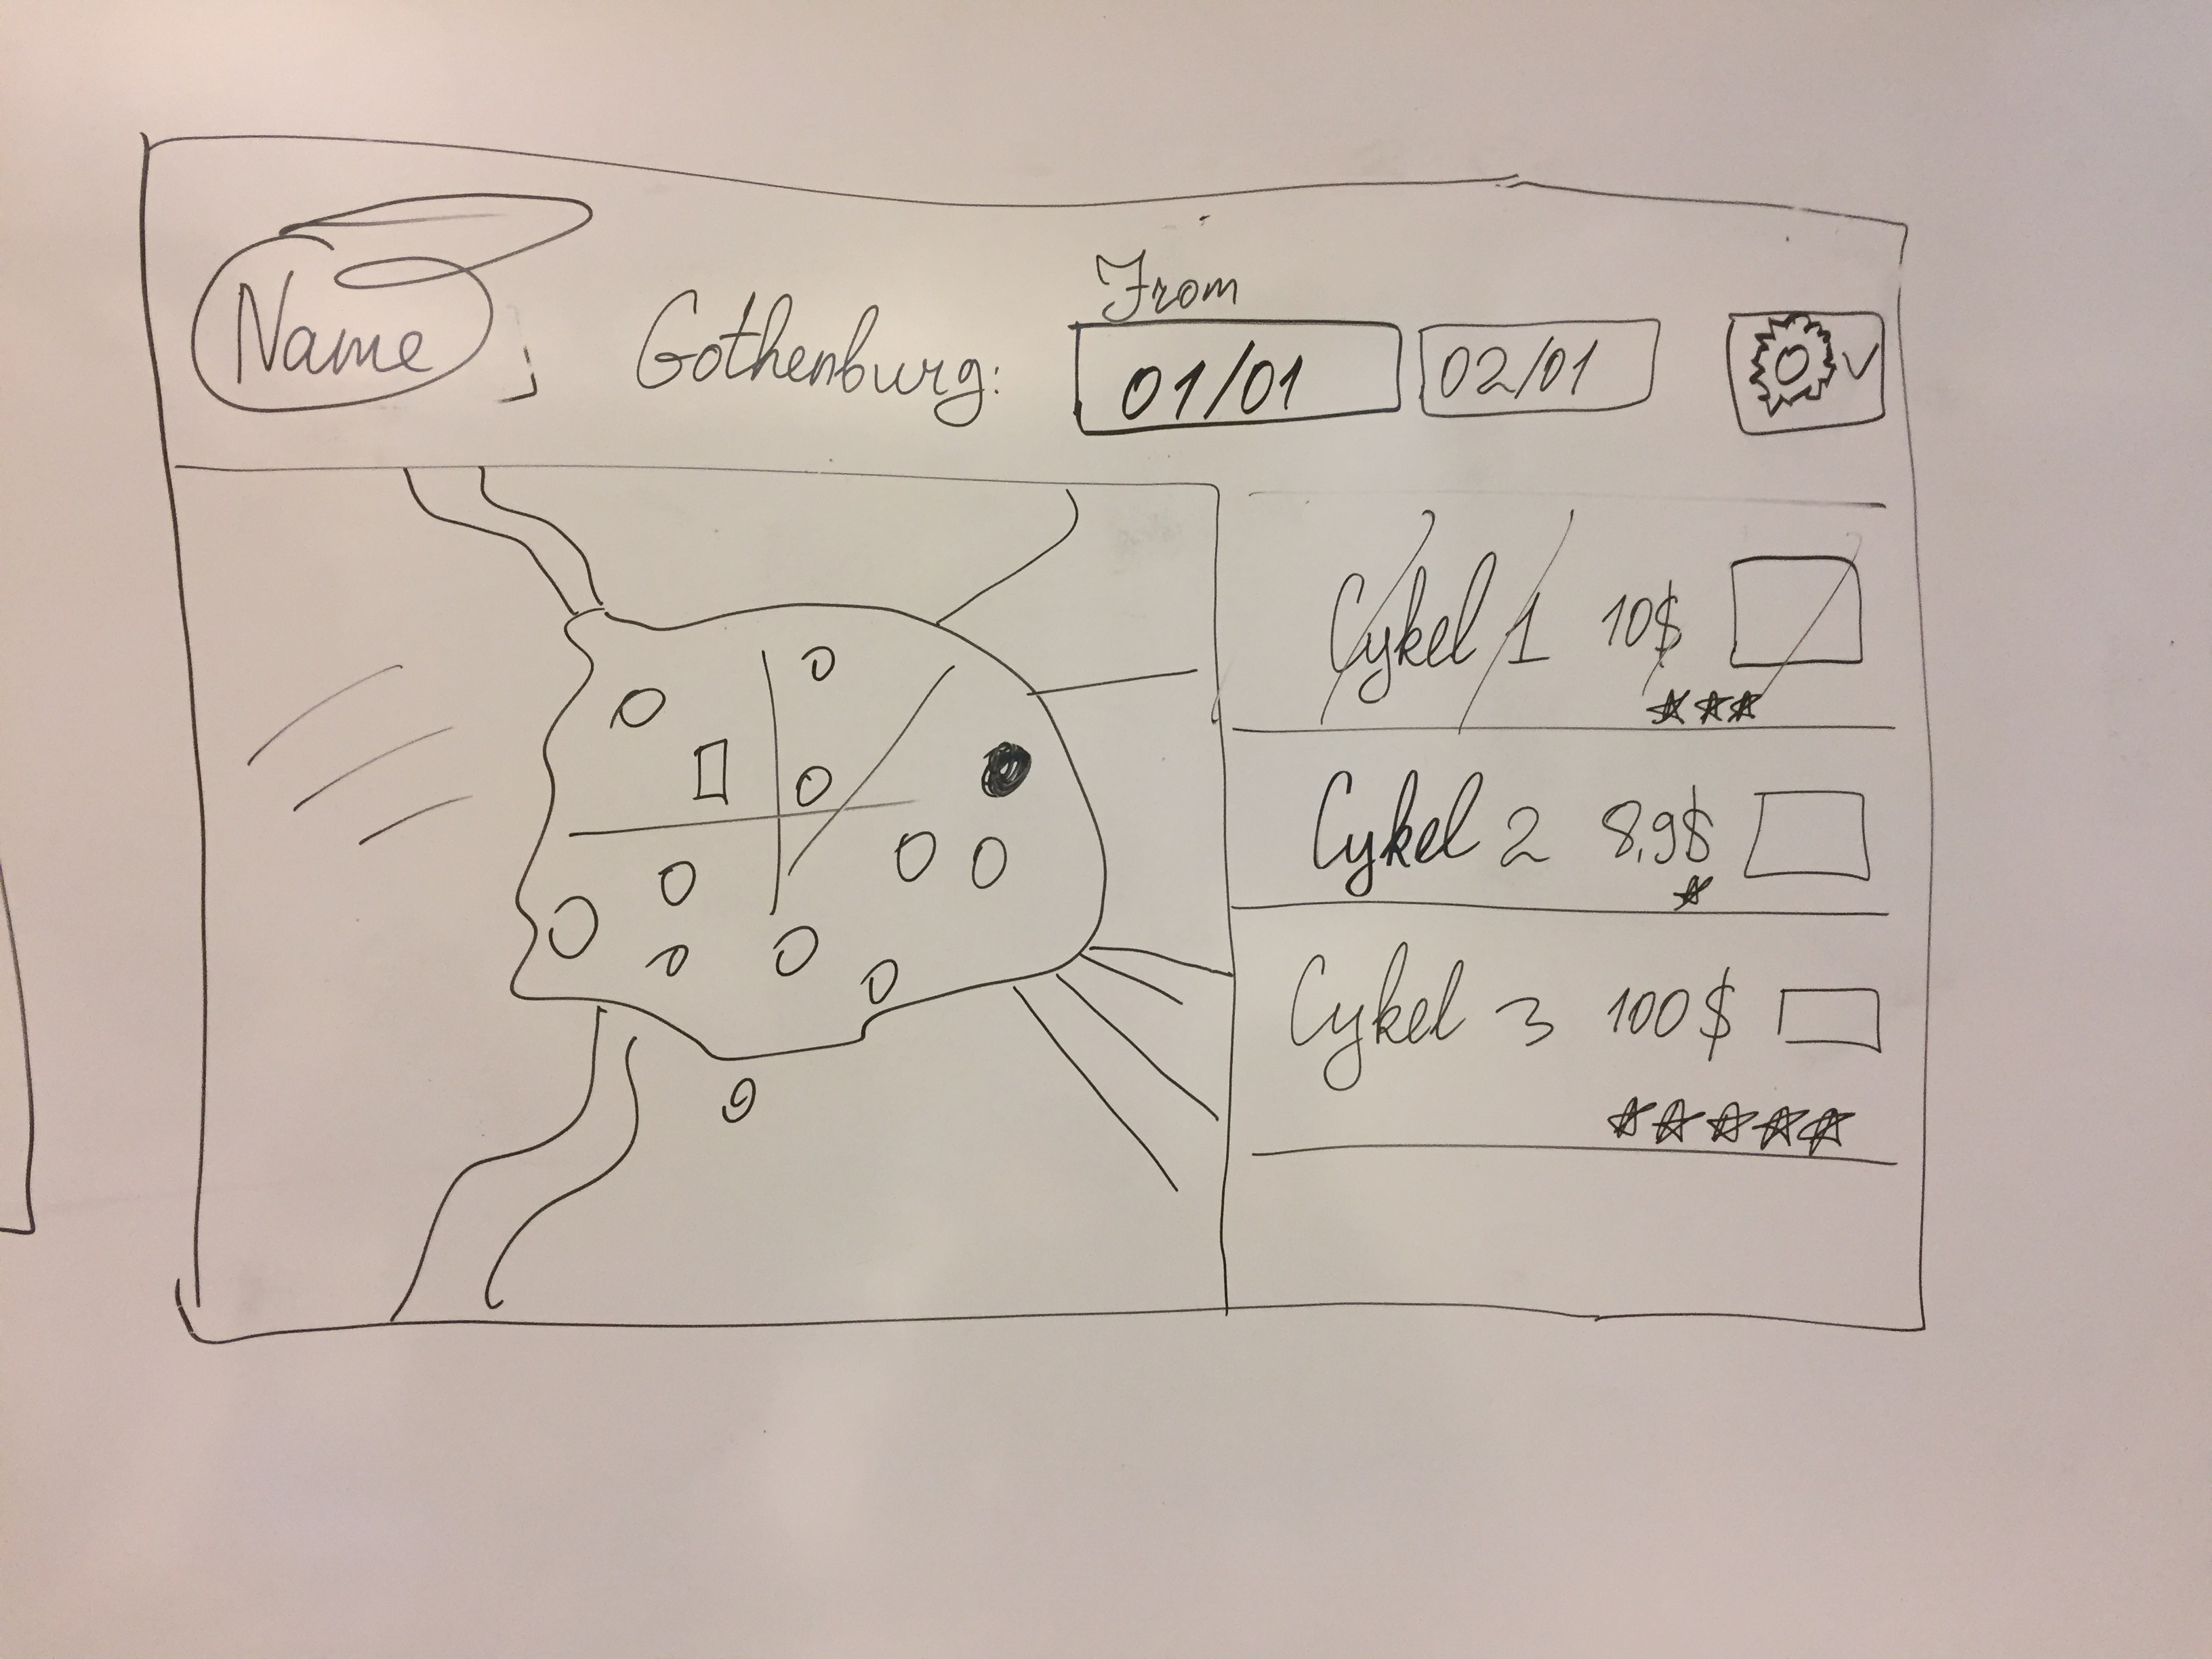 Name
Gothenburg:
From
01/01
02/01
Cykel 1 10$
Cykel 2 8,9$
Cykel 3 100$